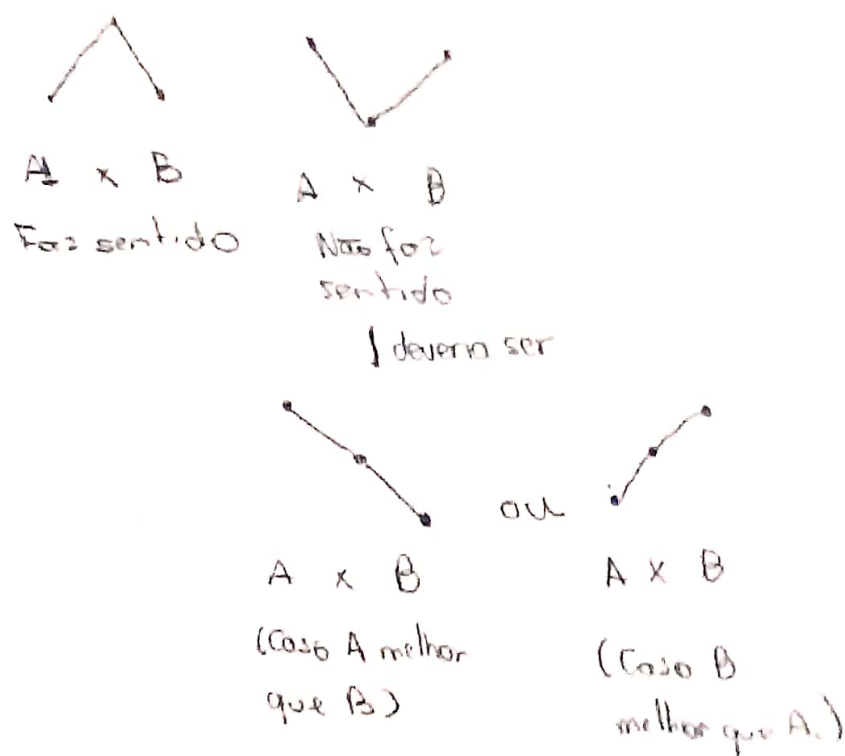 A x B
Faz sentido
A x B
Não faz
sentido
deveria ser
ou
A x B
(Caso A melhor
que B)
A x B
(Caso B
melhor que A.)